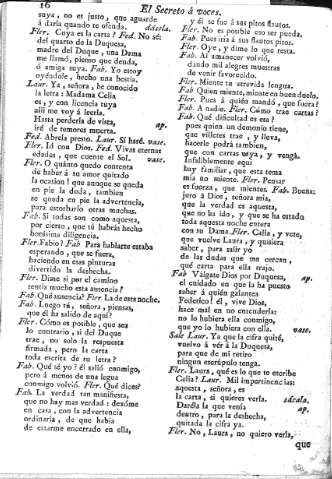 16
El Secreto á voces.
suya, no es justo, que aguarde
á darla quando te ofenda. dásela.
Fler. Cuya es la carta? Fed. No sé:
del quarto de la Duquesa,
madre del Duque, una Dama
me llamó, pienso que deuda,
ó amiga suya. Fab. Yo estoy
oyéndole, hecho una bestia.
Laur. Ya, señora, he conocido
la letra: Madama Celia
es, y con licencia tuya
allí me voy á leerla.
Hasta perderla de vista,
iré de temores muerta. ap.
Fed. Abuela pienso. Laur. Sí haré. vase.
Fler. Id con Dios. Fed. Vivas eternas
edades, que cuente el Sol. vase.
Fler. O quánto quedo contenta
de haber á su amor quitado
la ocasion! que aunque se queda
en pie la duda, tambien
se queda en pie la advertencia,
para estorbarlo otras muchas.
Fab. Si todas son como aquesta,
por cierto, que tú habrás hecho
bonísima diligencia.
Fler. Fabio? Fab Para hablarte estaba
esperando, que se fuera,
haciendo en esas pinturas
divertido la deshecha.
Fler. Dime si por el camino
sentía mucho esta ausencia?
Fab. Qué ausencia? Fler La de este noche.
Fab. Luego tú, señora, piensas,
que él ha salido de aquí?
Fler. Cómo es posible, que sea
lo contrario, si del Duque
trae, no solo la respuesta
firmada, pero la carta
toda escrita de su letra?
Fab. Qué sé yo? él salió conmigo,
pero á menos de una legua
conmigo volvió. Fler. Qué dices?
Fab. La verdad tan manifiesta,
que no hay mas verdad: dexóme
en casa, con la advertencia
ordinaria, de que habia
de estarme encerrado en ella,
y él se fué á sus pitos flautos.
Fler. No es posible eso ser pueda.
Fab. Pues iría á sus flautos pitos.
Fler. Oye, y dime lo que resta.
Fab. Al amanecer volvió,
dando mil alegres muestras
de venir favorecido.
Fler. Miente tu atrevida lengua.
Fab Quien miente, miente en buen duelo.
Fler. Pues á quién mandó, que fuera?
Fab. A nadie. Fler. Cómo trae cartas?
Fab. Qué dificultad es esa?
pues quien un demonio tiene,
que villetes trae, y lleva,
hacerle podrá tambien,
que con cartas vaya, y venga.
Infaliblemente aquí
hay familiar, que esta tema
mia no miente. Fler. Pensar
es fuerza, que mientes. Fab. Buena:
juro á Dios, señora mia,
que la verdad es aquesta,
que no ha ido, y que se ha estado
toda aquesta noche entera
con su Dama. Fler. Calla, y vete,
que vuelve Laura, y quisiera
saber, para salir yo
de las dudas que me cercan,
qué carta para ella traxo.
Fab Válgate Dios por Duquesa, ap.
el cuidado en que la ha puesto
saber á quién galantea
Federico! él, vive Dios,
hace mal en no entenderlas:
no lo hubiera ella conmigo,
que yo lo hubiera con ella. vase.
Sale Laur. Ya que la cifra quité,
vuelvo á vér á la Duquesa,
para que de mi retiro
ningun escrúpulo tenga.
Fler. Laura, qué es lo que te escribe
Celia? Laur. Mil impertinencias:
aquesta, señora, es
la carta, si quieres verla. sácala.
Daréla la que venía ap.
dentro, para la deshecha,
quitada la cifra ya.
Fler. No, Laura, no quiero verla,
que